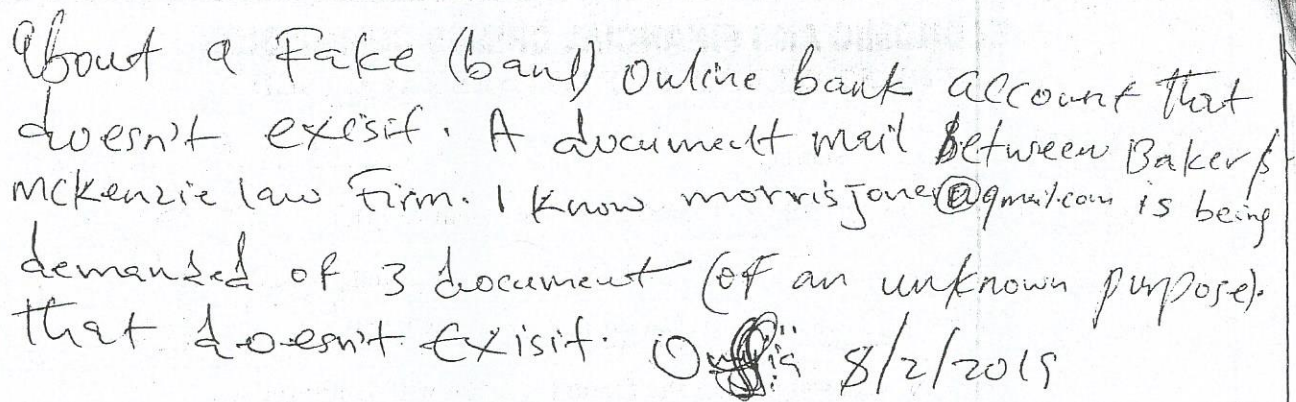 About a Fake (bank) Online bank account that
doesn't exisit. A document mail Between Baker &
McKenzie law Firm. I know morrisjones@gmail.com is being
demanded of 3 document (of an unknown purpose).
that doesn't Exisit. 8/2/2019